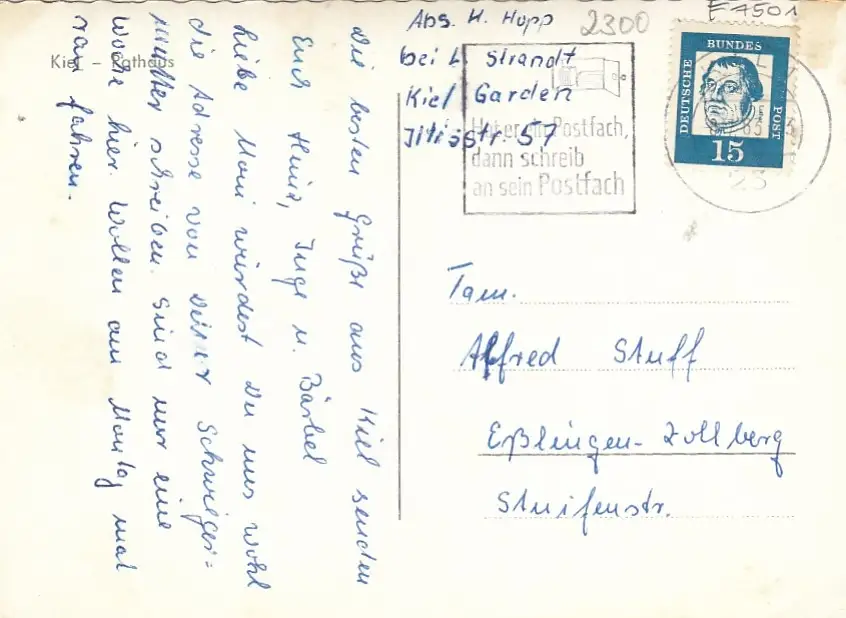 Kiel – Rathaus
Die besten Grüße aus Kiel senden
Euch Heinz, Inge u. Bärbel
Liebe Moni würdest Du uns wohl
die Adresse von Deiner Schwieger=
Mutter schreiben. Sind nur eine
Woche hier. Wollen am Montag mal
fahren.
Abs. H. Hupp
bei L Strandt
Kiel Garden
Iltisstr. 57
2300
E7501
Postfach,
dann schreib
an sein Postfach
DEUTSCHE BUNDES POST
15
23
Fam.
Alfred Stuff
Eßlingen-Zollberg
Stuifenstr.